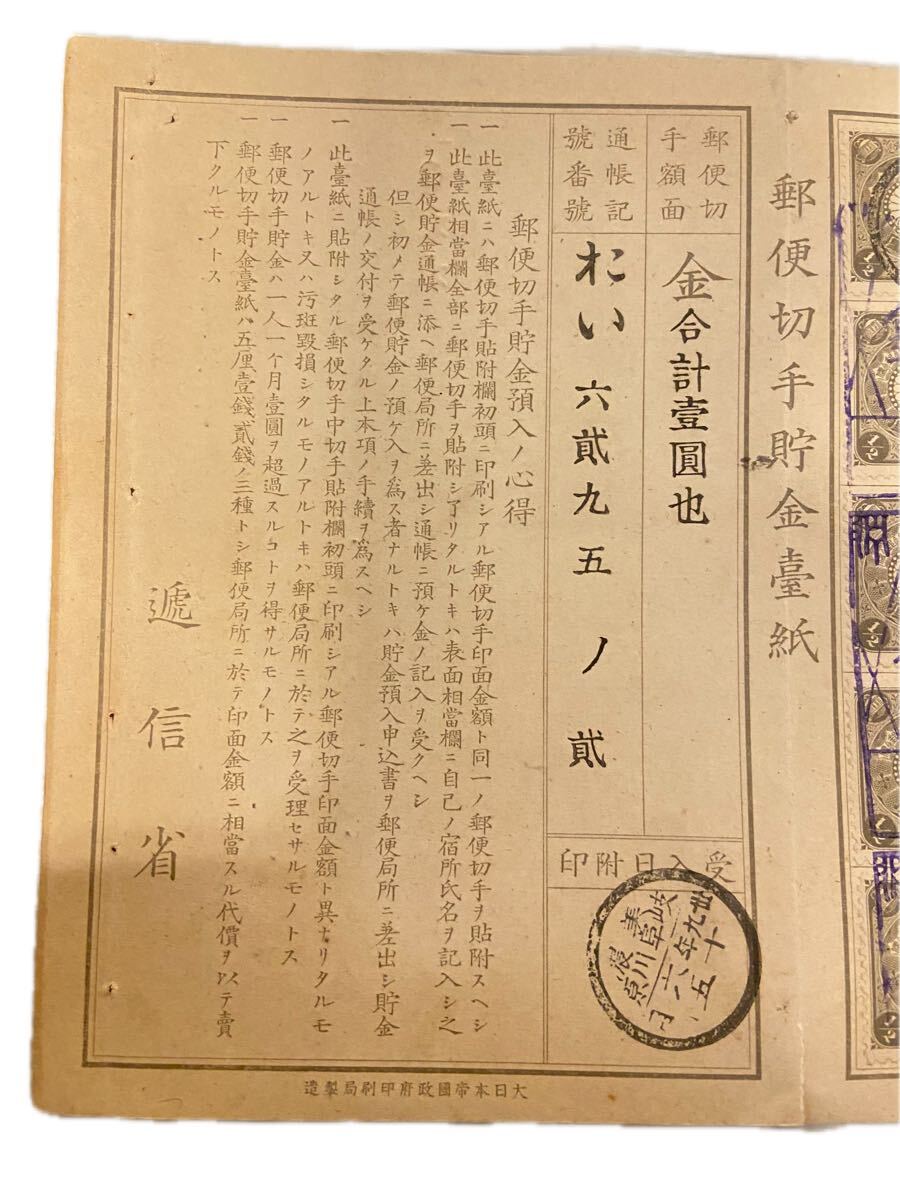 郵便切手貯金臺紙
郵便切手額面
金合計壹圓也
通帳記號番號
れい六貳九五ノ貳
受入日附印
郵便切手貯金預入ノ心得
一 此臺紙ニハ郵便切手貼附欄初頭ニ印刷シアル郵便切手印面金額ト同一ノ郵便切手ヲ貼附スヘシ
一 此臺紙相當欄全部ニ郵便切手ヲ貼附シ了リタルトキハ表面相當欄ニ自己ノ宿所氏名ヲ記入シ之
ヲ郵便貯金通帳ニ添ヘ郵便局所ニ差出シ通帳ニ預ケ金ノ記入ヲ受クヘシ
但シ初メテ郵便貯金ノ預ケ入ヲ爲ス者ナルトキハ貯金預入申込書ヲ郵便局所ニ差出シ貯金
通帳ノ交付ヲ受ケタル上本項ノ手續ヲ爲スヘシ
一 此臺紙ニ貼附シタル郵便切手中切手貼附欄初頭ニ印刷シアル郵便切手印面金額ト異ナリタルモ
ノアルトキ又ハ汚斑毀損シタルモノアルトキハ郵便局所ニ於テ之ヲ受理セサルモノトス
一 郵便切手貯金ハ一人一个月壹圓ヲ超過スルコトヲ得サルモノトス
一 郵便切手貯金臺紙ハ五厘壹錢貳錢ノ三種トシ郵便局所ニ於テ印面金額ニ相當スル代價ヲ以テ賣
下クルモノトス
遞信省
大日本帝國政府印刷局製造